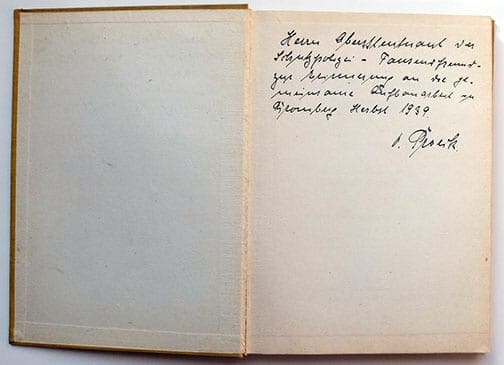 Herrn Oberstleutnant der
Schutzpolizei - Tausendfreund-
zur Erinnerung an die ge-
meinsame Aufbauarbeit zu
Bromberg Herbst 1939.